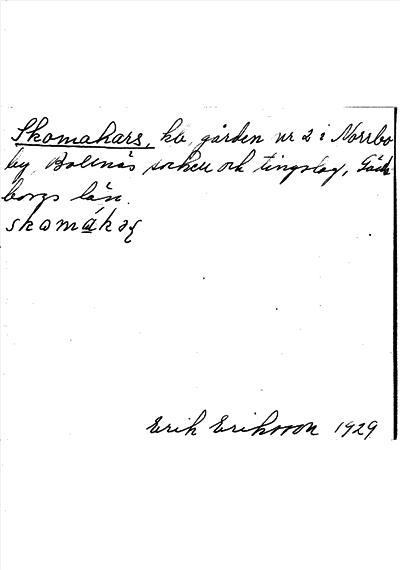 Skomakars, kb, gården nr 2 i Norrbo
by, Bollnäs socken och tingslag, Gävle
borgs län.
skomák
Erik Eriksson 1929